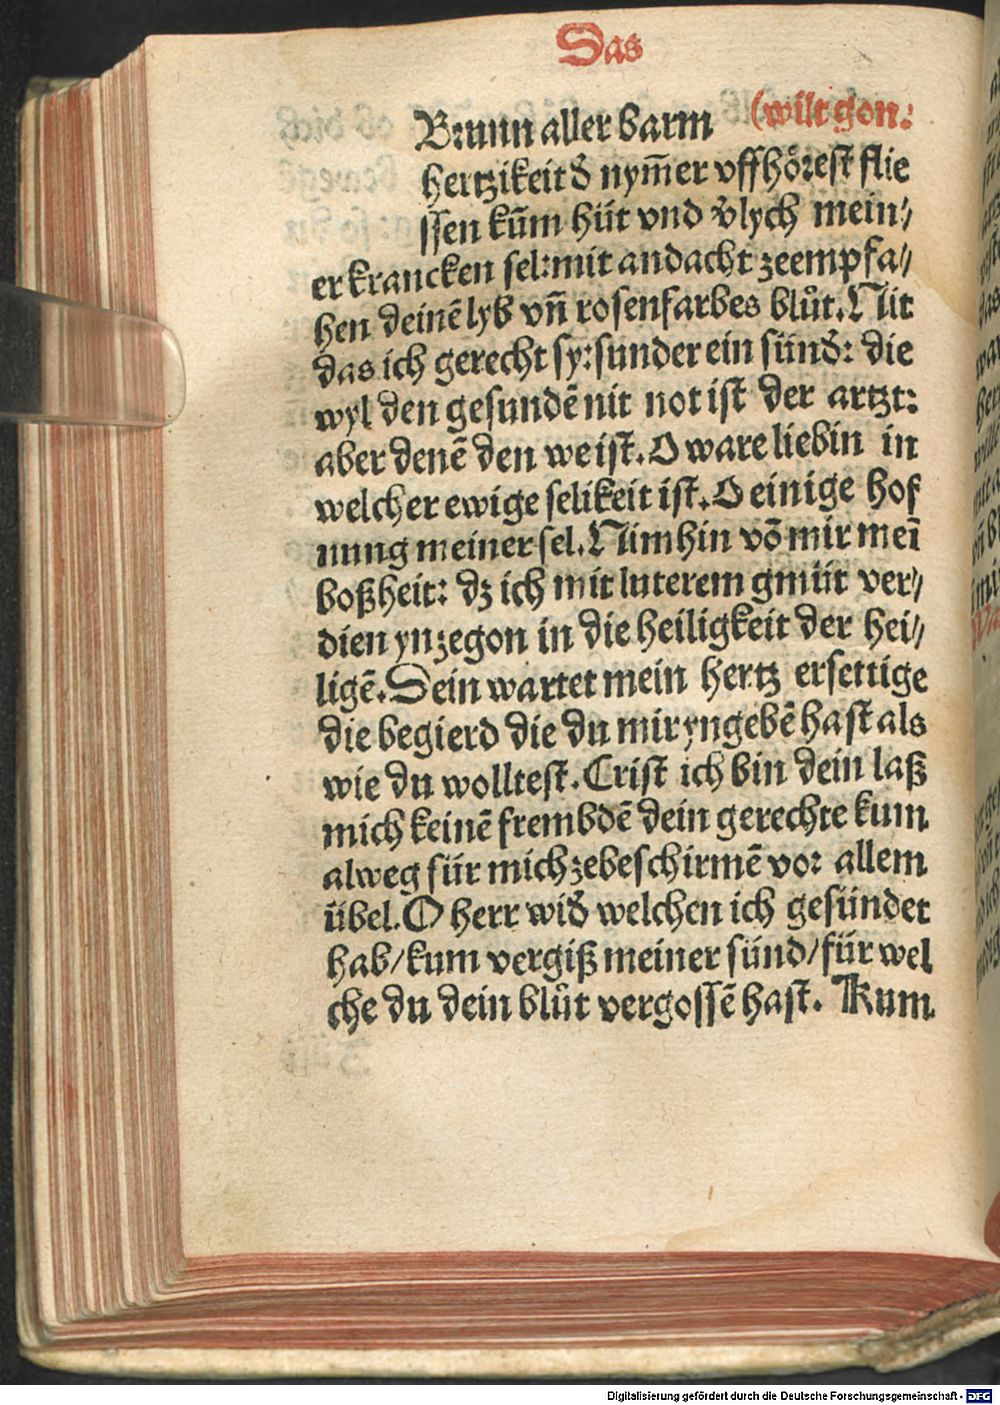 Das
Brunn aller barm (wilt gon.
hertzikeit d̕ nym̄er vffhoͤrest flie
ssen kum̄ hüt vnd v̕lych mein⸗
er krancken sel: mit andacht zeempfa⸗
hen deinē lyb vn̄ rosenfarbes bluͦt. Nit
das ich gerecht sy: sunder ein sünd̕: die
wyl den gesundē nit not ist der artzt:
aber denē den we ist. O ware liebin in
welcher ewige selikeit ist. O einige hof
nung meiner sel. Nim hin vō mir mei̅
boßheit: dz ich mit luterem gmüt ver⸗
dien ynzegon in die heiligkeit der hei⸗
ligē. Dein wartet mein hertz ersettige
die begierd die du mir yngebē hast als
wie du wolltest. Crist ich bin dein laß
mich keinē frembdē dein gerechte kum
alweg für mich zebeschirmē vor allem
übel. O herr wid̕ welchen ich gesündet
hab/ kum vergiß meiner sünd/ für wel
che du dein bluͦt vergossē hast. Kum
Digitalisierung gefördert durch die Deutsche Forschungsgemeinschaft - DFG